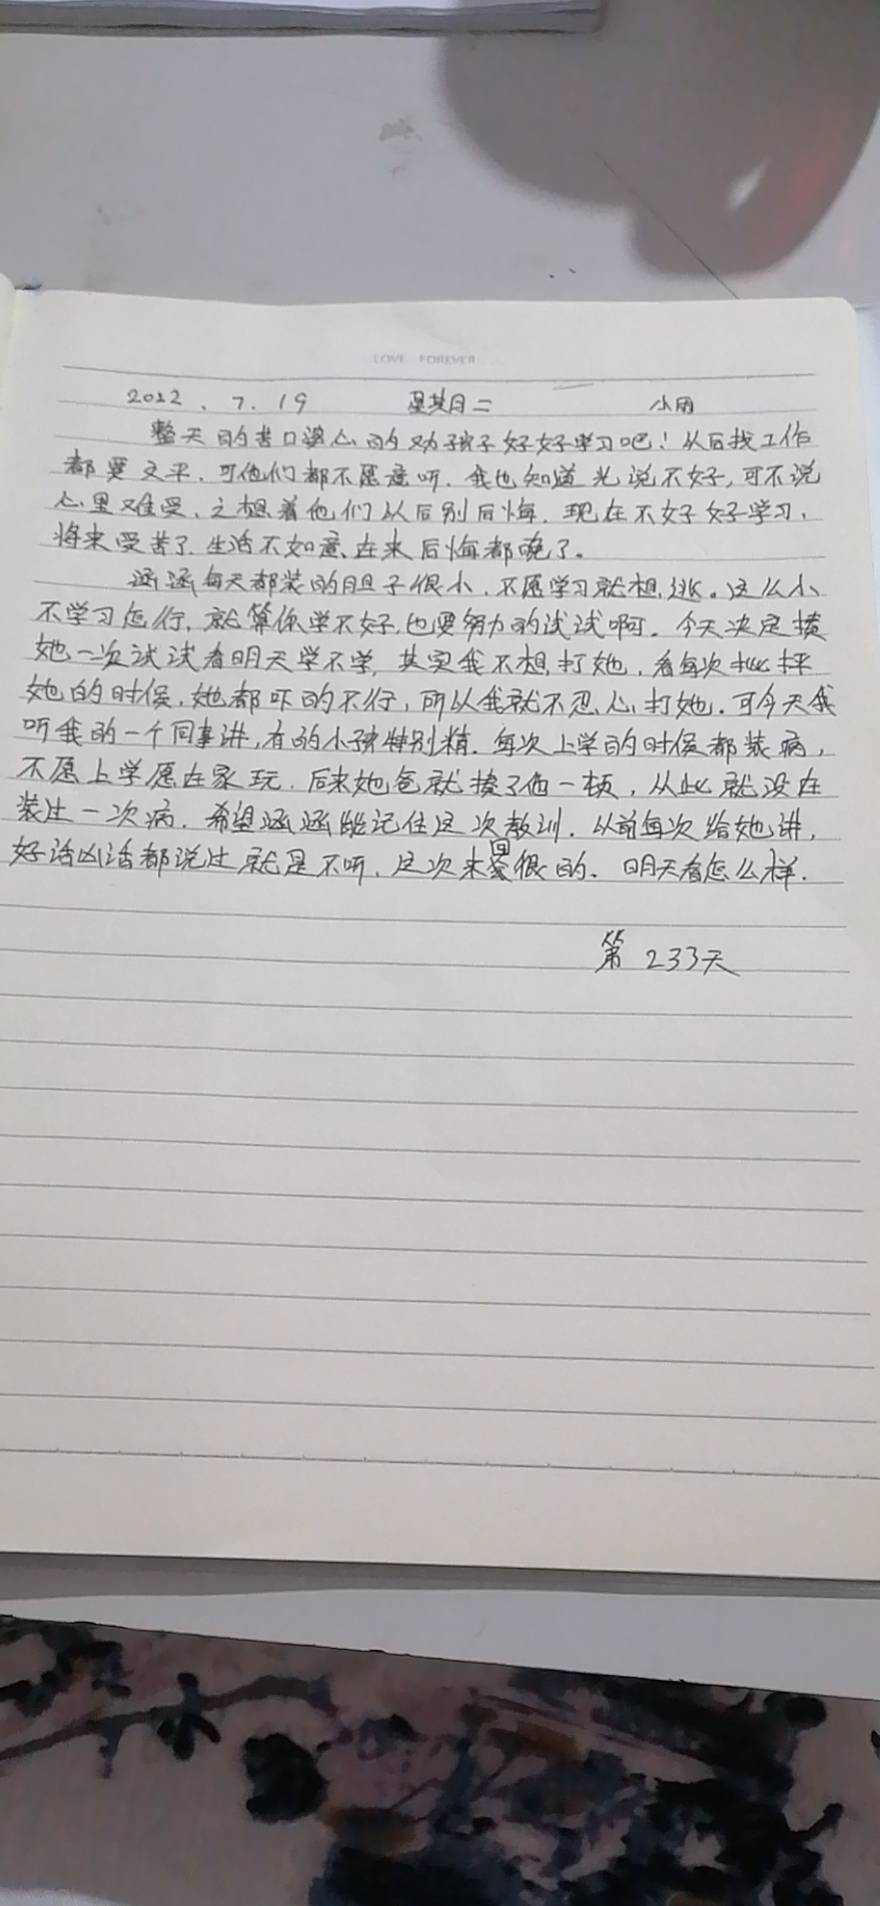 LOVE FOREVER
2022.7.19 星期二 小雨
整天的苦口婆心的劝孩子好好学习吧！从后找工作
都要文平.可他们都不愿意听.我也知道光说不好,可不说
心里难受、之想着他们从后别后悔.现在不好好学习,
将来受苦了.生活不如意、在来后悔都晚了。
涵涵每天都装的胆子很小.不愿学习就想逃。这么小
不学习怎行.就算你学不好,也要努力的试试啊.今天决定揍
她一次试试看明天学不学.其实我不想打她,看每次批抨
她的时候,她都吓的不行,所以我就不忍心打她.可今天我
听我的一个同事讲,有的小孩特别精.每次上学的时候都装病,
不愿上学愿在家玩.后来她爸就揍了他一顿,从此就没在
装过一次病.希望涵涵能记住这次教训.从前每次给她讲,
好话凶话都说过就是不听.这次来回很的.明天看怎么样.
第233天